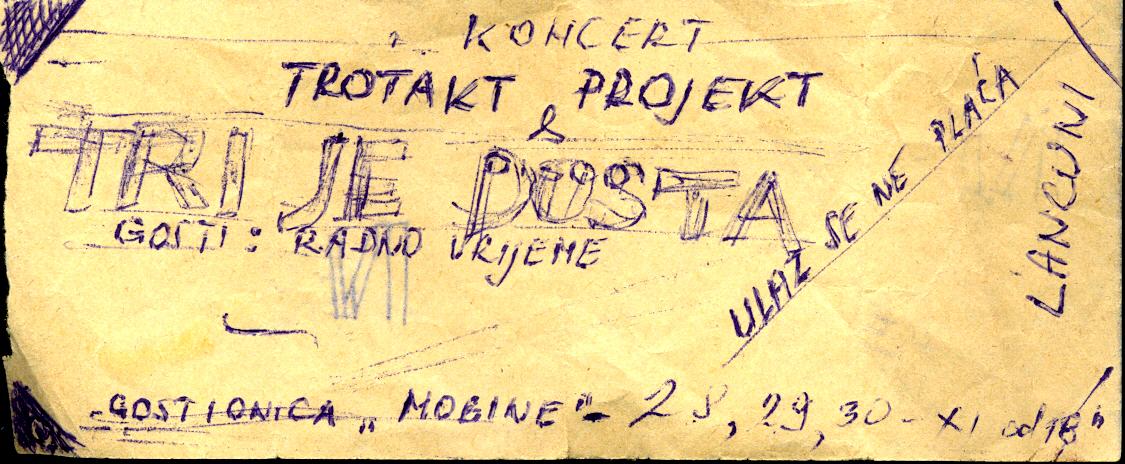 KONCERT
TROTAKT PROJEKT
&
TRI JE DOSTA
GOSTI: RADNO VRIJEME
ULAZ SE NE PLAĆA
LANCUNI
GOSTIONICA „MOBINE"- 28, 29, 30 - XI od 18 h